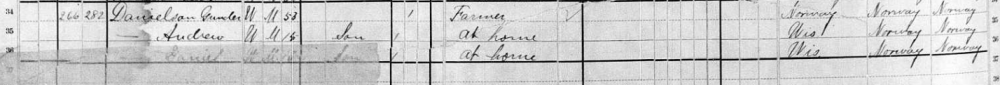 34 266 282 Danielson Gunder W M 53 1 Farmer Norway Norway Norway 34
35 — Andrew W M 18 Son 1 At home Wis Norway Norway 35
36 — Daniel W M Son 1 At home Wis Norway Norway 36
37